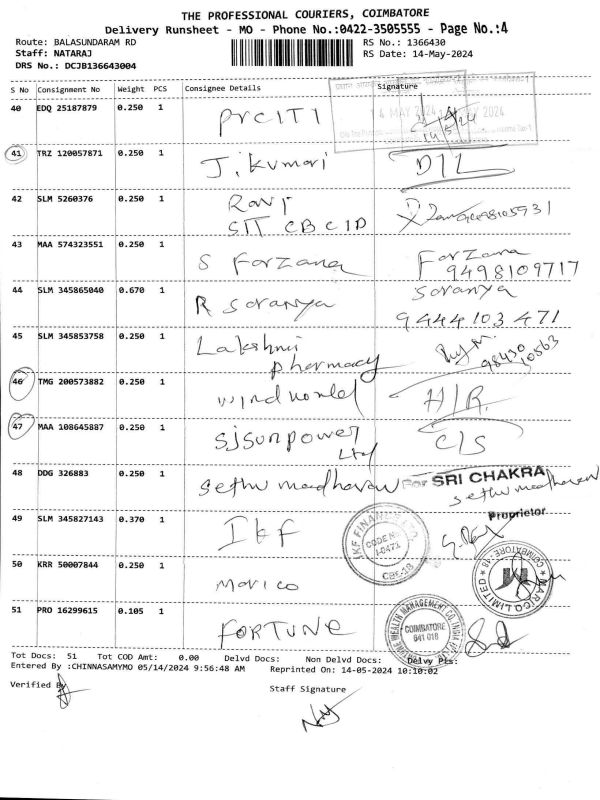 THE PROFESSIONAL COURIERS, COIMBATORE
Delivery Runsheet - MO - Phone No.:0422-3505555 - Page No.:4
Route: BALASUNDARAM RD
RS No.: 1366430
Staff: NATARAJ
RS Date: 14-May-2024
DRS No.: DCJB136643004
S No Consignment No Weight PCS Consignee Details Signature
40 EDQ 25187879 0.250 1 PrCITI
14 MAY 2024
14/5/24
41 TRZ 120057871 0.250 1 J. Kumari D/L
42 SLM 5260376 0.250 1 Ravi
SIT CBCID 9498105931
43 MAA 574323551 0.250 1 S Farzana Farzana
9498109717
44 SLM 345865040 0.670 1 R Soranya Soranya
9444103471
45 SLM 345853758 0.250 1 Lakshmi
Pharmacy 98430
10563
46 TMG 200573882 0.250 1 Windworld H/R.
47 MAA 108645887 0.250 1 SJSunpower
Ltd C/S
48 DDG 326883 0.250 1 Sethu Madhavan For SRI CHAKRA
Sethu Madhavan
Proprietor
49 SLM 345827143 0.370 1 IKF
IKF FINANCE LTD.
CODE No
CBE-18
50 KRR 50007844 0.250 1 Marico
MARICO LIMITED
COIMBATORE - 18
51 PRO 16299615 0.105 1 FORTUNE
WEALTH MANAGEMENT CO. INDIA
COIMBATORE
641 018
Tot Docs: 51 Tot COD Amt: 0.00 Delvd Docs: Non Delvd Docs: Delvy Pts:
Entered By :CHINNASAMYMO 05/14/2024 9:56:48 AM Reprinted On: 14-05-2024 10:10:02
Verified By
Staff Signature